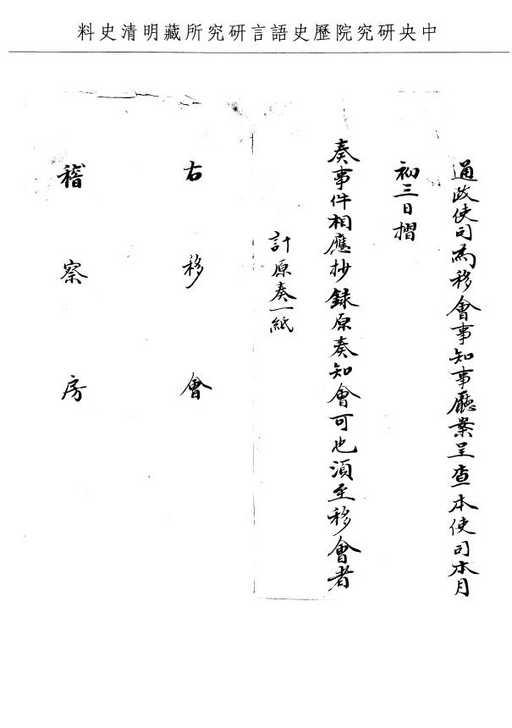 中央研究院歷史語言研究所藏明清史料
通政使司為移會事知事廳案呈查本使司本月
初三日摺
奏事件相應抄錄原奏知會可也湏至移會者
計原奏一紙
右移會
稽察房